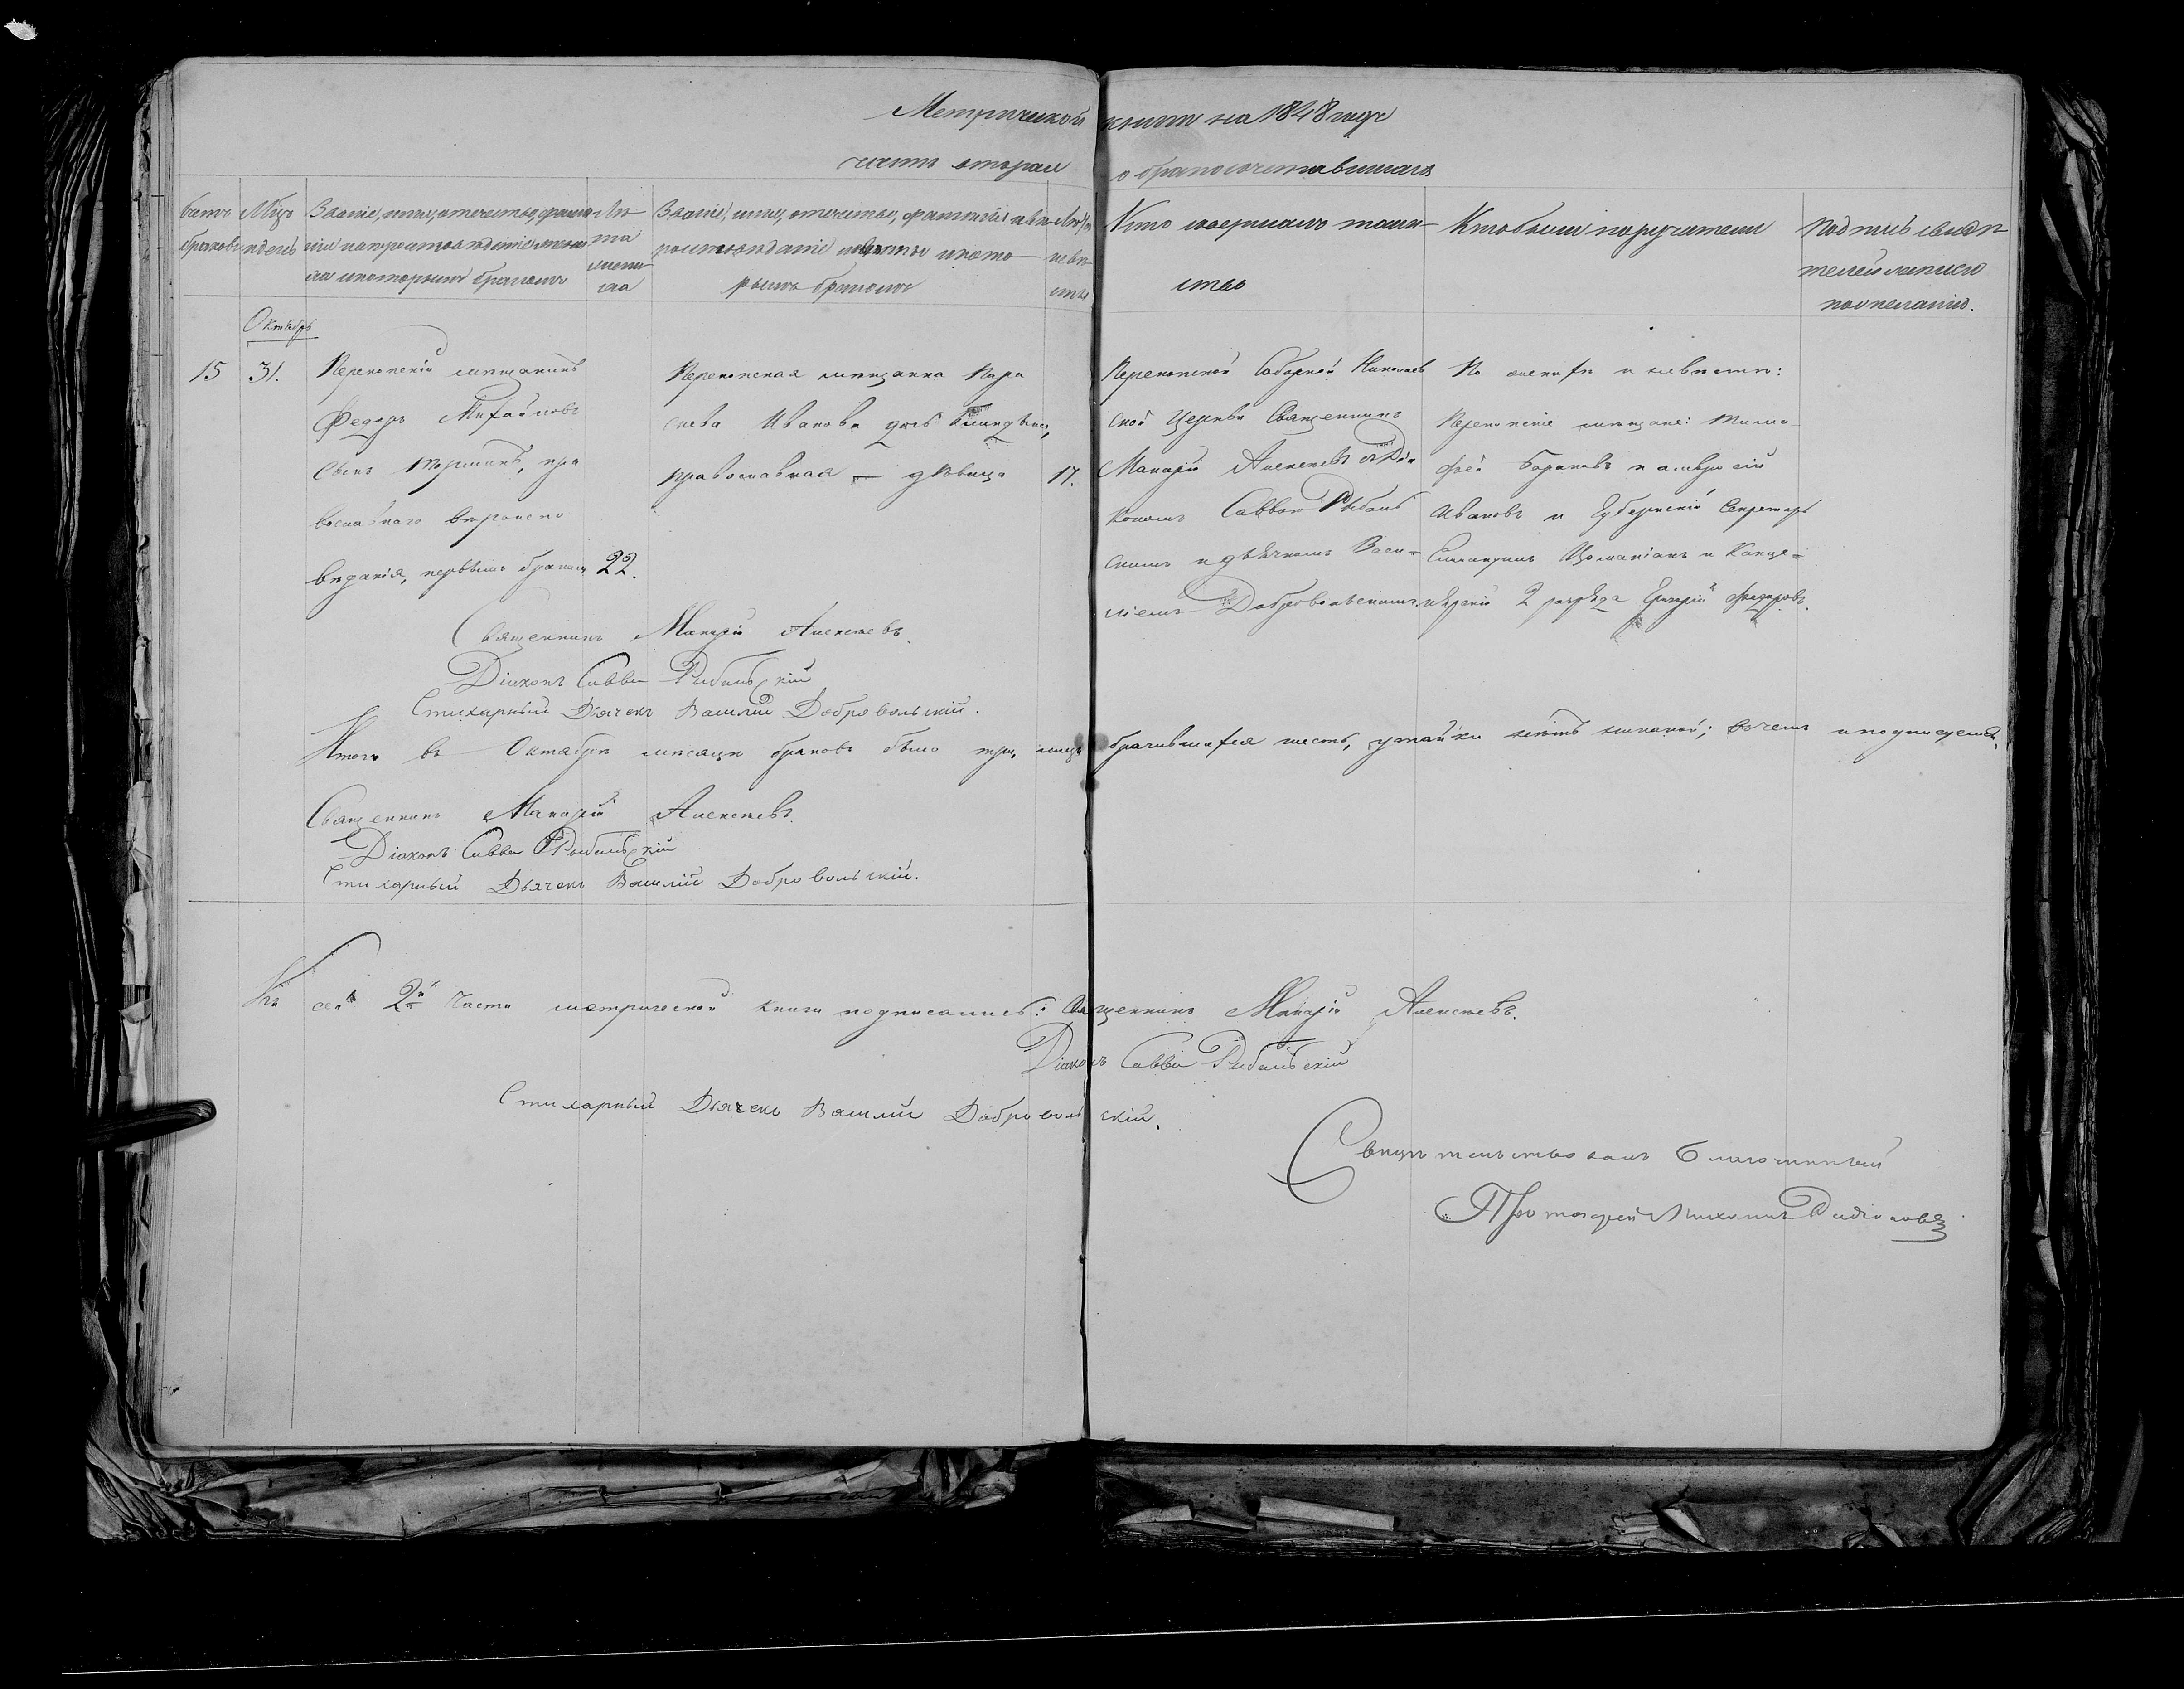 Метрической книги на 1848 годъ
часть вторая о бракосочетавшихся
Мѣцъ и день
Званіе, имя, отечество, фамилія и вѣроисповѣданіе жениха и которымъ бракомъ
Лѣта жениха
Званіе, имя, отечество, фамилія и вѣроисповѣданіе невѣсты и которымъ бракомъ
Лѣта невѣсты
Кто совершалъ таинство
Кто были поручители
Подпись свидѣтелей записи по желанію.
Октябрь
15
31.
Перекопскій мѣщанинъ
Федоръ Михайловъ
сынъ
православнаго вѣроиспо
вѣданія, первымъ бракомъ
22.
Перекопская мѣщанка Пара
скева Иванова дочь
православная — дѣвица
17.
Перекопской Соборной Николаев
ской Церкви Священникъ
Макарій Алексѣевъ съ Діа
кономъ Саввою Рыбаль
скимъ и дьячкомъ Васи=
ліемъ Добровольскимъ.
По женихѣ и невѣстѣ:
Перекопскіе мѣщане: Тимо
фей
Ивановъ и Губернскій Секретарь
и Канце=
лярскій 2 разряда Григорій Федоровъ.
Священникъ Макарій Алексѣевъ.
Діаконъ Савва Рибальскій
Стихарный Дьячекъ Василій Добровольскій.
Итого въ Октябрѣ мѣсяцѣ браковъ было три, лицъ брачившихся шесть, утайки нѣтъ никакой; въ чемъ и подписуемся.
Священникъ Макарій Алексѣевъ.
Діаконъ Савва Рыбальскій
Стихарный Дьячекъ Василій Добровольскій.
Къ сей 2й части метрической книги подписались: Священникъ Макарій Алексѣевъ.
Діаконъ Савва Рибальскій
Стихарный Дьячекъ Василій Добровольскій.
Свидѣтельствовалъ Благочинный
Протоіерей Родіоновъ